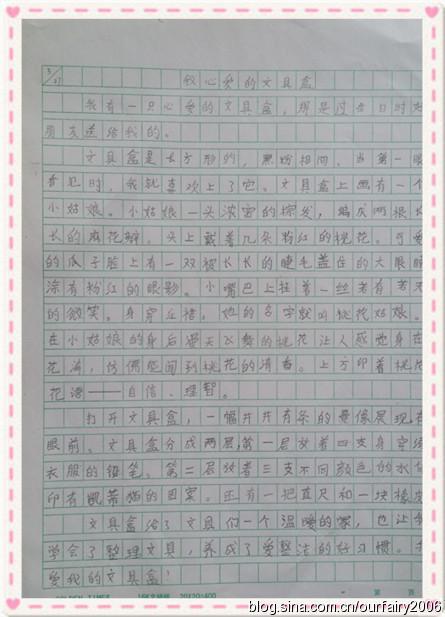 3/27
我心爱的文具盒
我有一只心爱的文具盒，那是过生日时好
朋友送给我的。
文具盒是长方形的，黑粉相间，当第一眼
看见时，我就喜欢上了它。文具盒上画有一个
小姑娘。小姑娘一头浓密的棕发，编成两根长
长的麻花辫。头上戴着几朵粉红的桃花。可爱
的瓜子脸上有一双被长长的睫毛盖住的大眼睛
涂有粉红的眼影。小嘴巴上挂着一丝若有若无
的微笑。身穿丘裙，她的名字就叫桃花姑娘。
在小姑娘的身后漫天飞舞的桃花让人感觉身在
花海，仿佛能闻到桃花的清香。上方印着桃花
花语——自信、理智。
打开文具盒，一幅井井有条的景像展现在
眼前。文具盒分成两层第一层放着四支身穿
衣服的铅笔。第二层放着三支不同颜色的水
印有凯蒂猫的图案。还有一把直尺和一块橡皮
文具盒给了文具们一个温暖的家，也让我
学会了整理文具，养成了爱整洁的好习惯。我
爱我的文具盒！
GOLDEN TIMES 20X20=400 第 页
blog.sina.com.cn/ourfairy2006